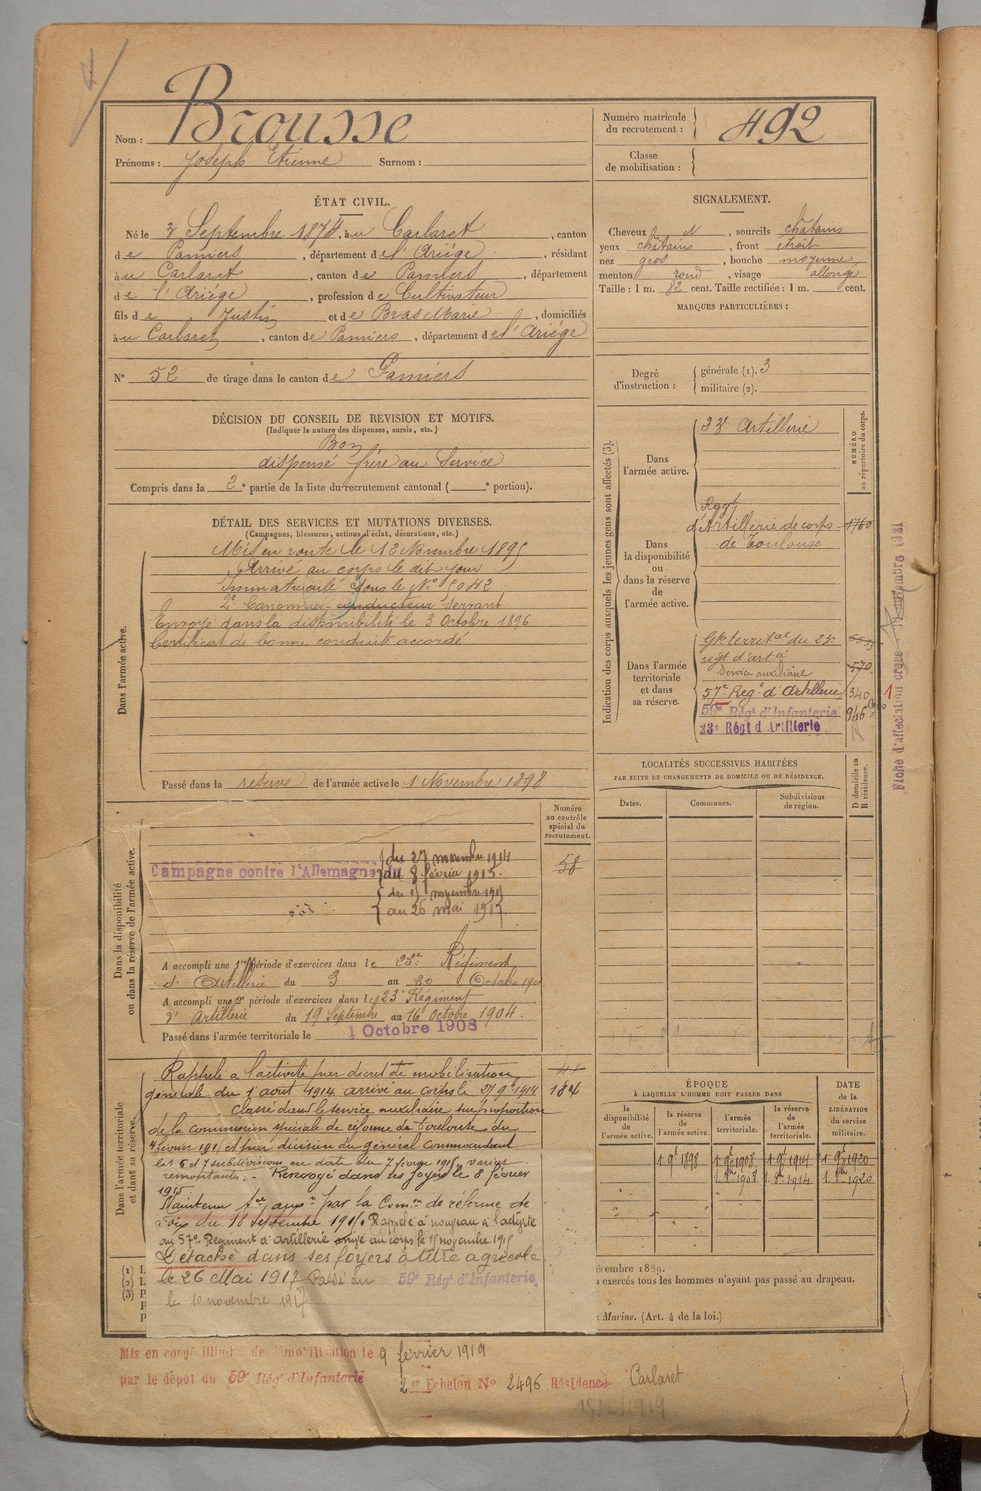 Nom : Brousse
Prénoms : Joseph Etienne Surnom :
Numéro matricule du recrutement : 492
Classe de mobilisation :
ÉTAT CIVIL.
Né le 3 Septembre 1874, à u Carlaret, canton
d e Pamiers, département d e l'Ariége, résidant
à u Carlaret, canton d e Pamiers, département
d e l'Ariége, profession d e Cultivateur
fils d e Justin et d e Bras Marie, domiciliés
à u Carlaret, canton d e Pamiers, département d e l'Ariége
N° 52 de tirage dans le canton d e Pamiers
SIGNALEMENT.
Cheveux N, sourcils châtains
yeux châtains, front étroit
nez gros, bouche moyenne
menton rond, visage allongé
Taille : 1 m. 82 cent. Taille rectifiée : 1 m. cent.
MARQUES PARTICULIÈRES :
Degré d'instruction : générale (1). 3
militaire (2).
DÉCISION DU CONSEIL DE REVISION ET MOTIFS.
(Indiquer la nature des dispenses, sursis, etc.)
Bon
dispensé frère au Service
Compris dans la 2e partie de la liste du recrutement cantonal ( e portion).
DÉTAIL DES SERVICES ET MUTATIONS DIVERSES.
(Campagnes, blessures, actions d'éclat, décorations, etc.)
Dans l'armée active.
Mis en route le 12 Novembre 1895
Arrivé au corps le dit jour
Immatriculé sous le N° 5042
2e Canonnier conducteur Servant
Envoyé dans la disponibilité le 3 Octobre 1896
Certificat de bonne conduite accordé
Passé dans la réserve de l'armée active le 1 Novembre 1898
Indication des corps auxquels les jeunes gens sont affectés (3).
NUMÉRO au répertoire du corps.
Dans l'armée active.
23e Artillerie
Dans la disponibilité ou dans la réserve de l'armée active.
Regt
d'Artillerie de corps 1760
de Toulouse
Dans l'armée territoriale et dans sa réserve.
Gpe territal du 23e
regt d'artie 570
Service auxiliaire
57e Regt d'Artillerie 340
59e Régt d'Infanterie 946
23e Régt d'Artillerie
Fiche d'affectation
LOCALITÉS SUCCESSIVES HABITÉES
PAR SUITE DE CHANGEMENTS DE DOMICILE OU DE RÉSIDENCE.
D domicile ou R résidence.
Dates. Communes. Subdivisions de région.
Dans la disponibilité ou dans la réserve de l'armée active.
Numéro au contrôle spécial du recrutement.
58
Campagne contre l'Allemagne du 27 novembre 1914
au 8 février 1915.
du 15 novembre 1915
au 26 mai 1917.
A accompli une 1re période d'exercices dans le 23e Régiment
d'Artillerie du 3 au 30 Octobre
A accompli une 2e période d'exercices dans le 23e Régiment
d'Artillerie du 19 Septembre au 16 Octobre 1904.
Passé dans l'armée territoriale le 1 Octobre 1908
Dans l'armée territoriale et dans sa réserve.
184
Rappelé à l'activité par décret de mobilisation
générale du 1 aout 1914 arrivé au corps le 27 9bre 1914
classé dans le service auxiliaire sur proposition
de la commission spéciale de réforme de Toulouse du
4 février 1915 et par décision du général commandant
les 5 et 7 subdivisions en date du 7 février 1915 varices
Renvoyé dans ses foyers le 8 février
1915
Maintenu sce auxre par la Comon de réforme de
Foix du 18 septembre 1915 Rappelé à nouveau à l'activité
au 57e Régiment d'Artillerie arrivé au corps le 15 novembre 1915
Détaché dans ses foyers à titre agricole
le 26 Mai 1917 Passé au 59e Régt d'Infanterie
le 10 novembre 1917
ÉPOQUE
À LAQUELLE L'HOMME DOIT PASSER DANS
DATE de la LIBÉRATION du service militaire.
la disponibilité de l'armée active. la réserve de l'armée active. l'armée territoriale. la réserve de l'armée territoriale.
1 9e 1898 1 9e 1908 1 9e 1914 1 9e 1920
1908 1914 1920
(1) L
(2) L
(3) P
écembre 1889.
exercés tous les hommes n'ayant pas passé au drapeau.
Marine. (Art. 4 de la loi.)
Mis en congé illimité de mobilisation le 9 février 1919
par le dépôt du 59e Régt d'Infanterie
2e Echelon N° 2496 Résidence Carlaret